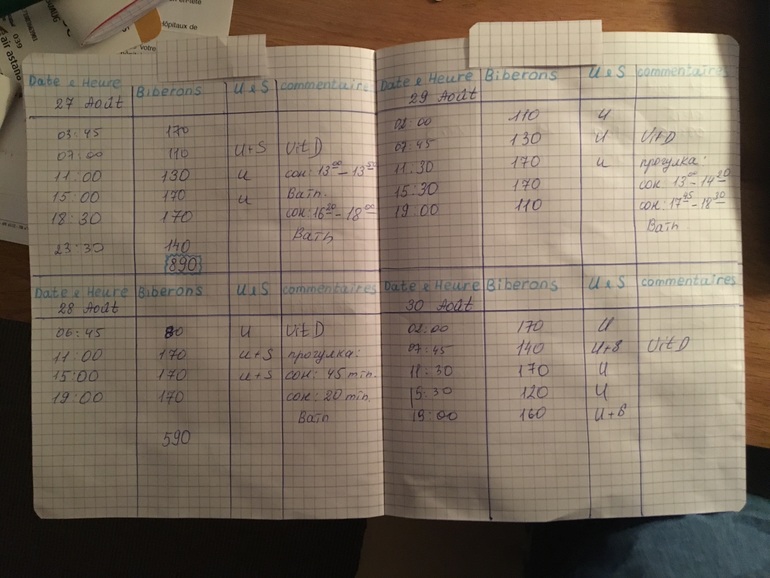 Date e Heure Biberons U e S commentaires
27 Août
03:45 170
07:00 110 U+S Vit D
11:00 130 u сон: 13⁰⁰-13⁵⁰
15:00 170 u Bain.
18:30 170 сон: 16³⁰-18⁰⁰
Bain
23:30 140
890
Date e Heure Biberons U e S commentaires
28 Août
06:45 80 U Vit D
11:00 170 u+S прогулка:
15:00 170 u+S сон: 45 min.
19:00 170 сон: 20 min
Bain
590
Date e Heure Biberons U e S commentaires
29 Août
02:00 110 u
07:45 130 u Vit D
11:30 170 u прогулка:
15:30 170 сон: 13⁰⁰-14³⁰
19:00 110 сон: 17⁴⁵-18³⁰
Bain
Date e Heure Biberons U e S commentaires
30 Août
02:00 170 U
07:45 140 U+S Vit D
11:30 170 U
15:30 120 U
19:00 160 U+S
air astana
votre